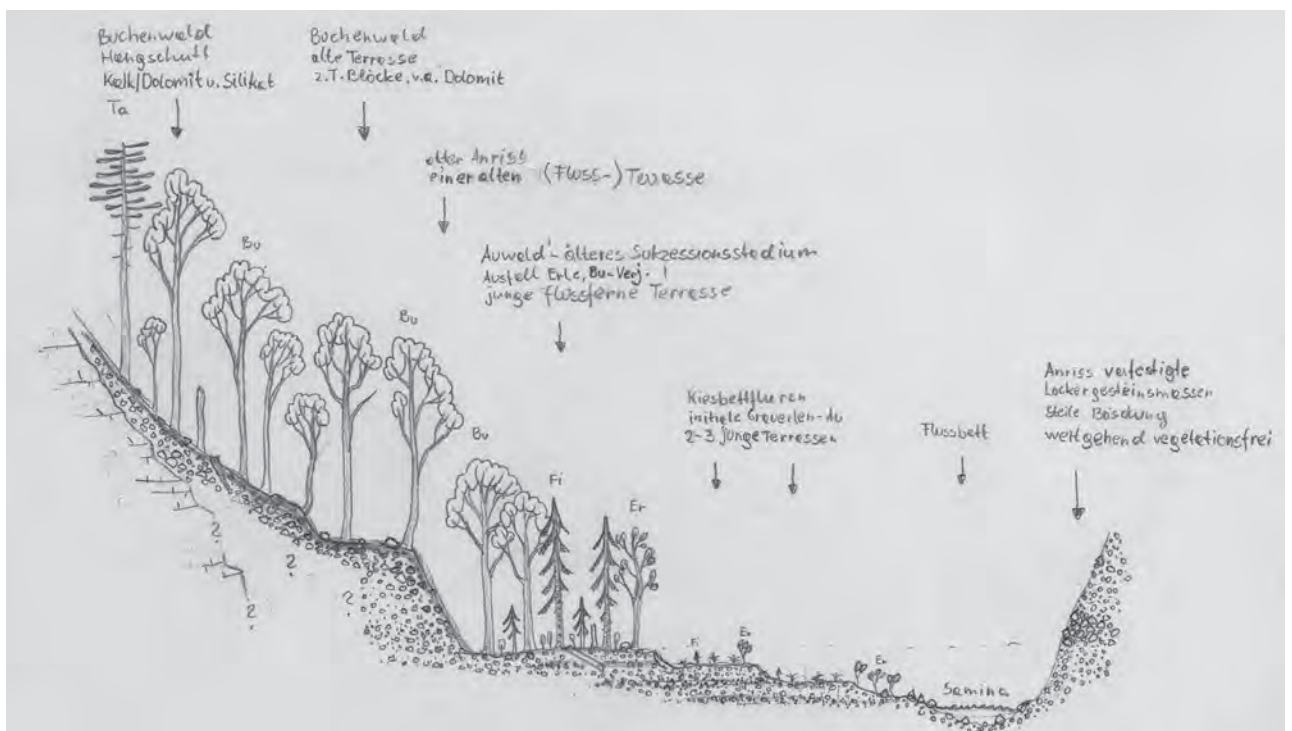 Buchenwald
Hangschutt
Kalk/Dolomit u. Silikat
Ta
Buchenwald
alte Terrasse
z.T. Blöcke, v.a. Dolomit
alter Anriss
einer alten (Fluss-) Terrasse
Auwald - älteres Sukzessionsstadium
Ausfall Erle, Bu-Verj. !
junge flussferne Terrasse
Kiesbettfluren
initiale Grauerlen-Au
2-3 junge Terrassen
Flussbett
Anriss verfestigte
Lockergesteinsmassen
steile Böschung
weitgehend vegetationsfrei
Bu
Bu
Bu
Fi
Er
Fi
Er
Er
Samina
?
?
?
?